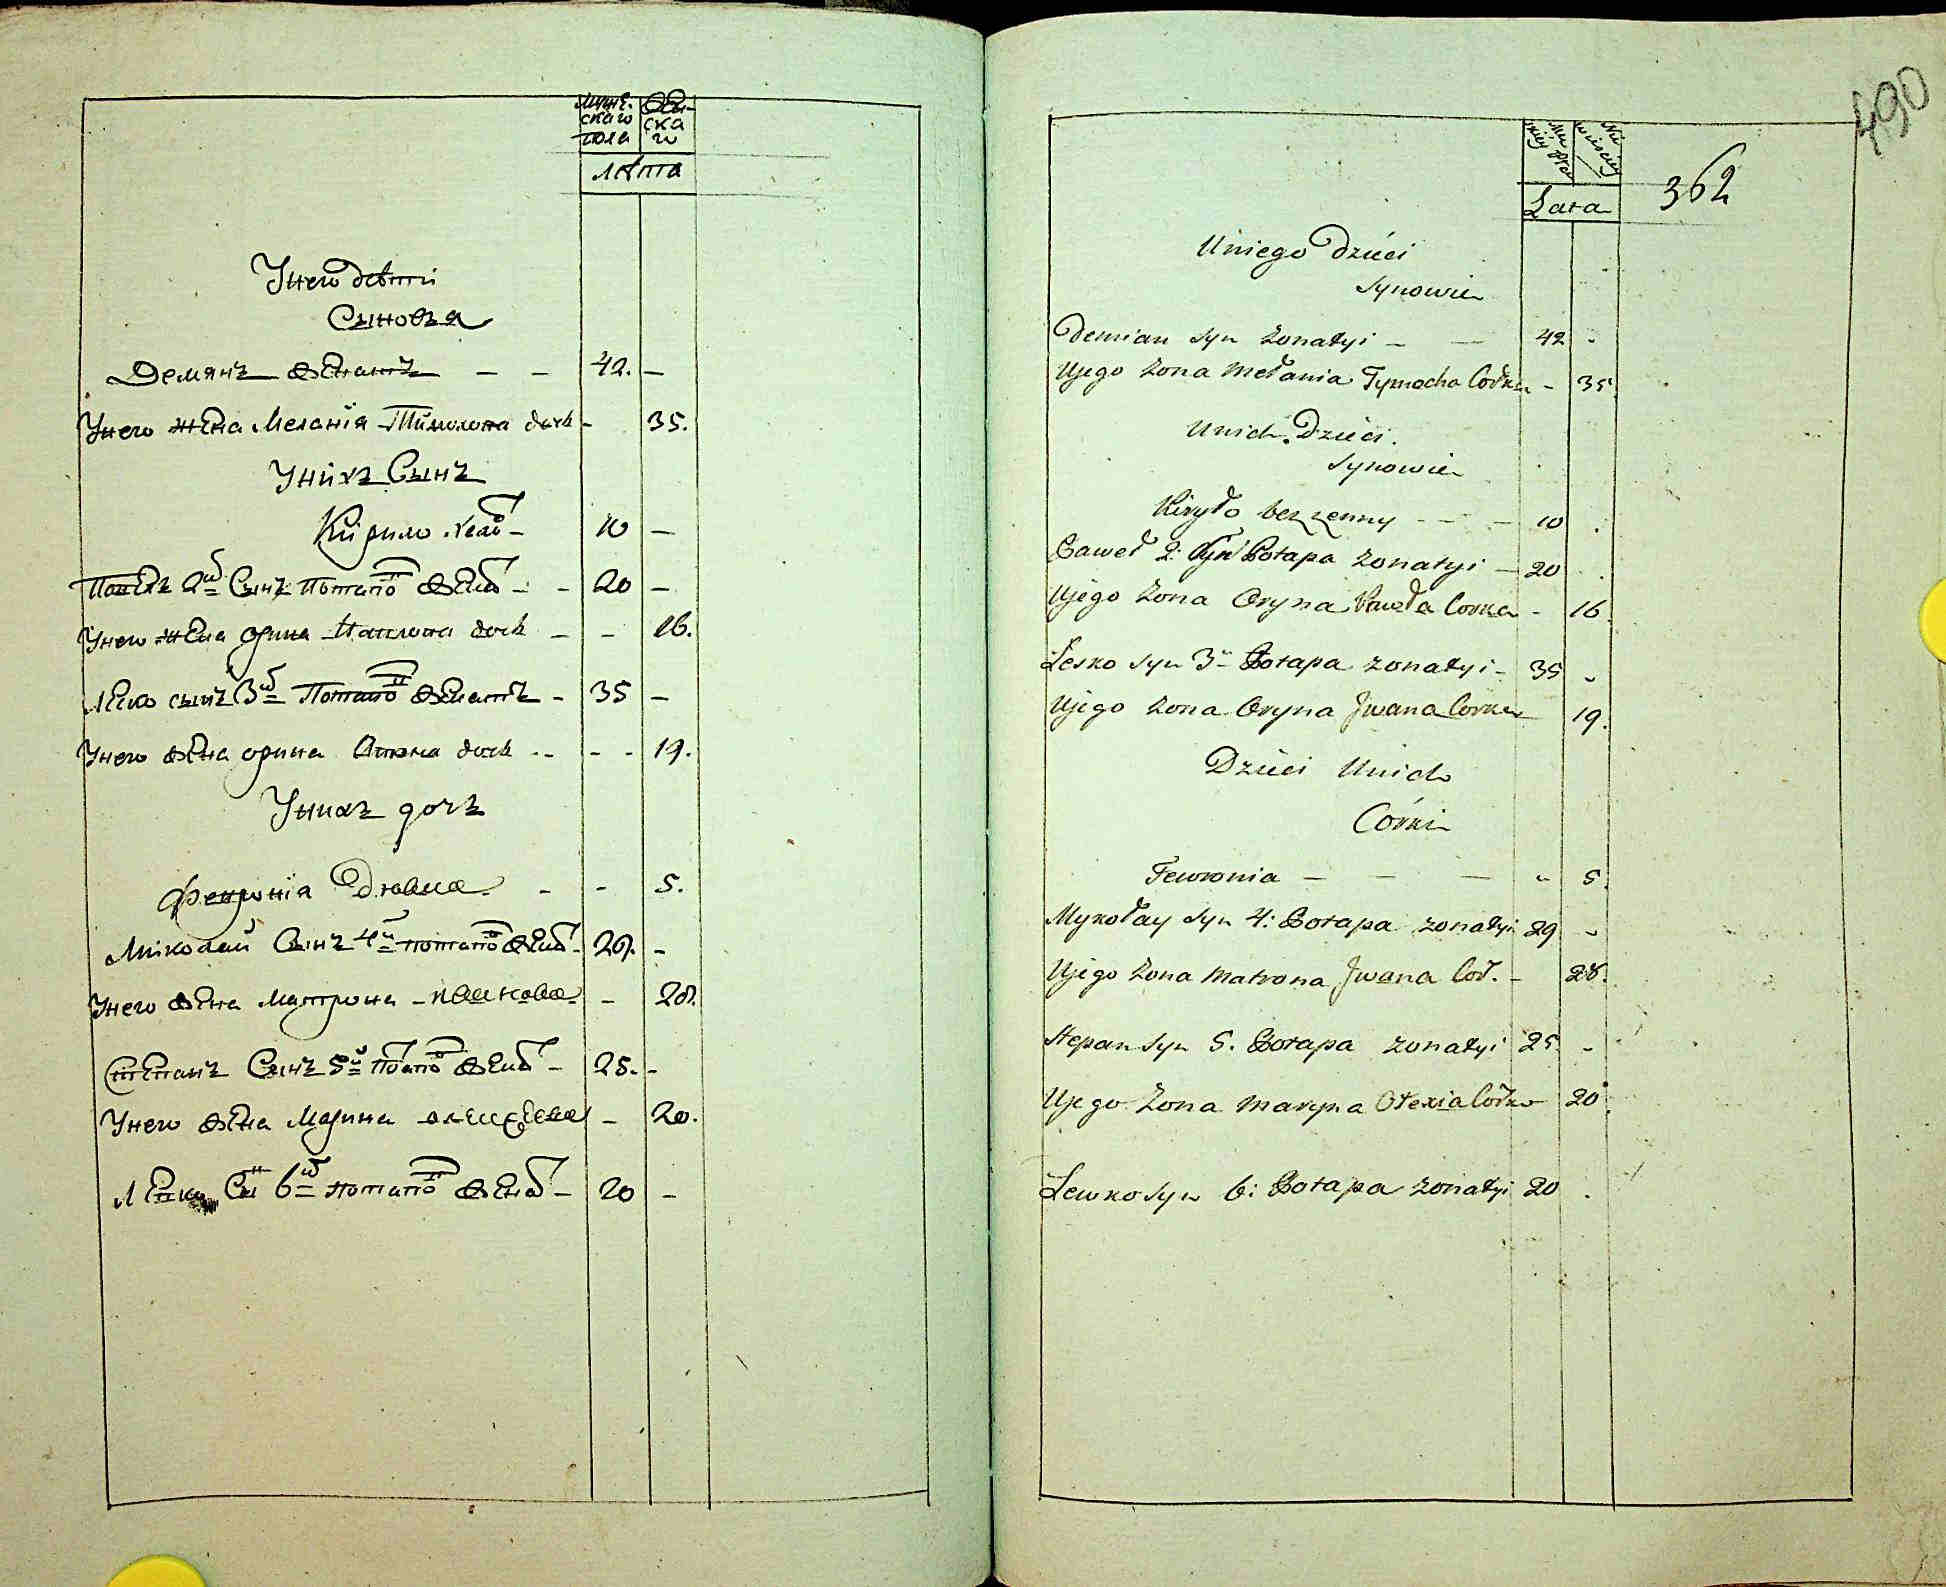 мужескаго пола
женскаго
лѣта
У него дѣти
Сыновья
Демянъ женатъ — — 42. —
У него жена Мелания Тимохова дочь - 35.
У нихъ Сынъ
Кирило холо - 10 —
Павелъ 2й Сынъ Потапо жена - - 20 —
У него жена орина Павлова дочь — - 16.
Леско сынъ 3й Потапо женатъ - 35 —
У него жена орина дочь - - - - 19.
У нихъ дочь
Феврония - - 5.
Миколай Сынъ 4й потапо жена - 29. -
У него жена Матрона ивановa - 28.
Степанъ Сынъ 5й потапо жена - 25. -
У него жена Марина алексеева - 20.
Левко Сн 6й потапо жена - 20 -
490
362
Lata
Uniego Dzieci
Synowie
Demian Syn żonatyi - — 42 -
Ujego żona Mełania Tymocha Córka - 35.
Unich Dzieci.
Synowie
Kiryło bezżenny - - - 10 .
Paweł 2. Syn Potapa żonatyi - 20 .
Ujego żona Oryna Pawła Corka - 16.
Lesko Syn 3 Potapa żonatyi - 35 -
Ujego żona Oryna Jwana Corka 19.
Dzieci Unich
Córki
Fewronia — — — - 5.
Mykołay Syn 4: Potapa żonatyi 29 -
Ujego żona Matrona Jwana Cor. - 28.
Stepan Syn 5. Potapa żonatyi 25. -
Ujego żona Maryna Ołexia Corka 20.
Lewko Syn 6: Potapa żonatyi 20 .